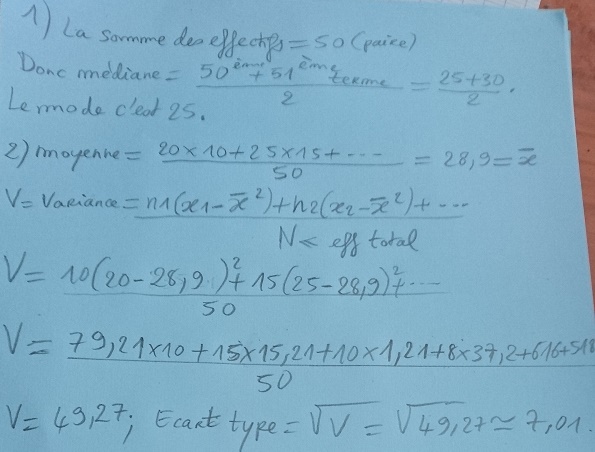 1) La somme des effectifs = 50 (paire)
Donc médiane = (50ème + 51ème terme)/2 = (25+30)/2.
Le mode c'est 25.
2) moyenne = (20×10+25×15+---)/50 = 28,9 = x̄
V = Variance = (n1(x1-x̄²)+n2(x2-x̄²)+---)/(N ← eff total)
V = (10(20-28,9)²+15(25-28,9)²+---)/50
V = (79,21×10+15×15,21+10×1,21+8×37,2+616+518)/50
V = 49,27; Ecart type = √V = √49,27 ≃ 7,01.